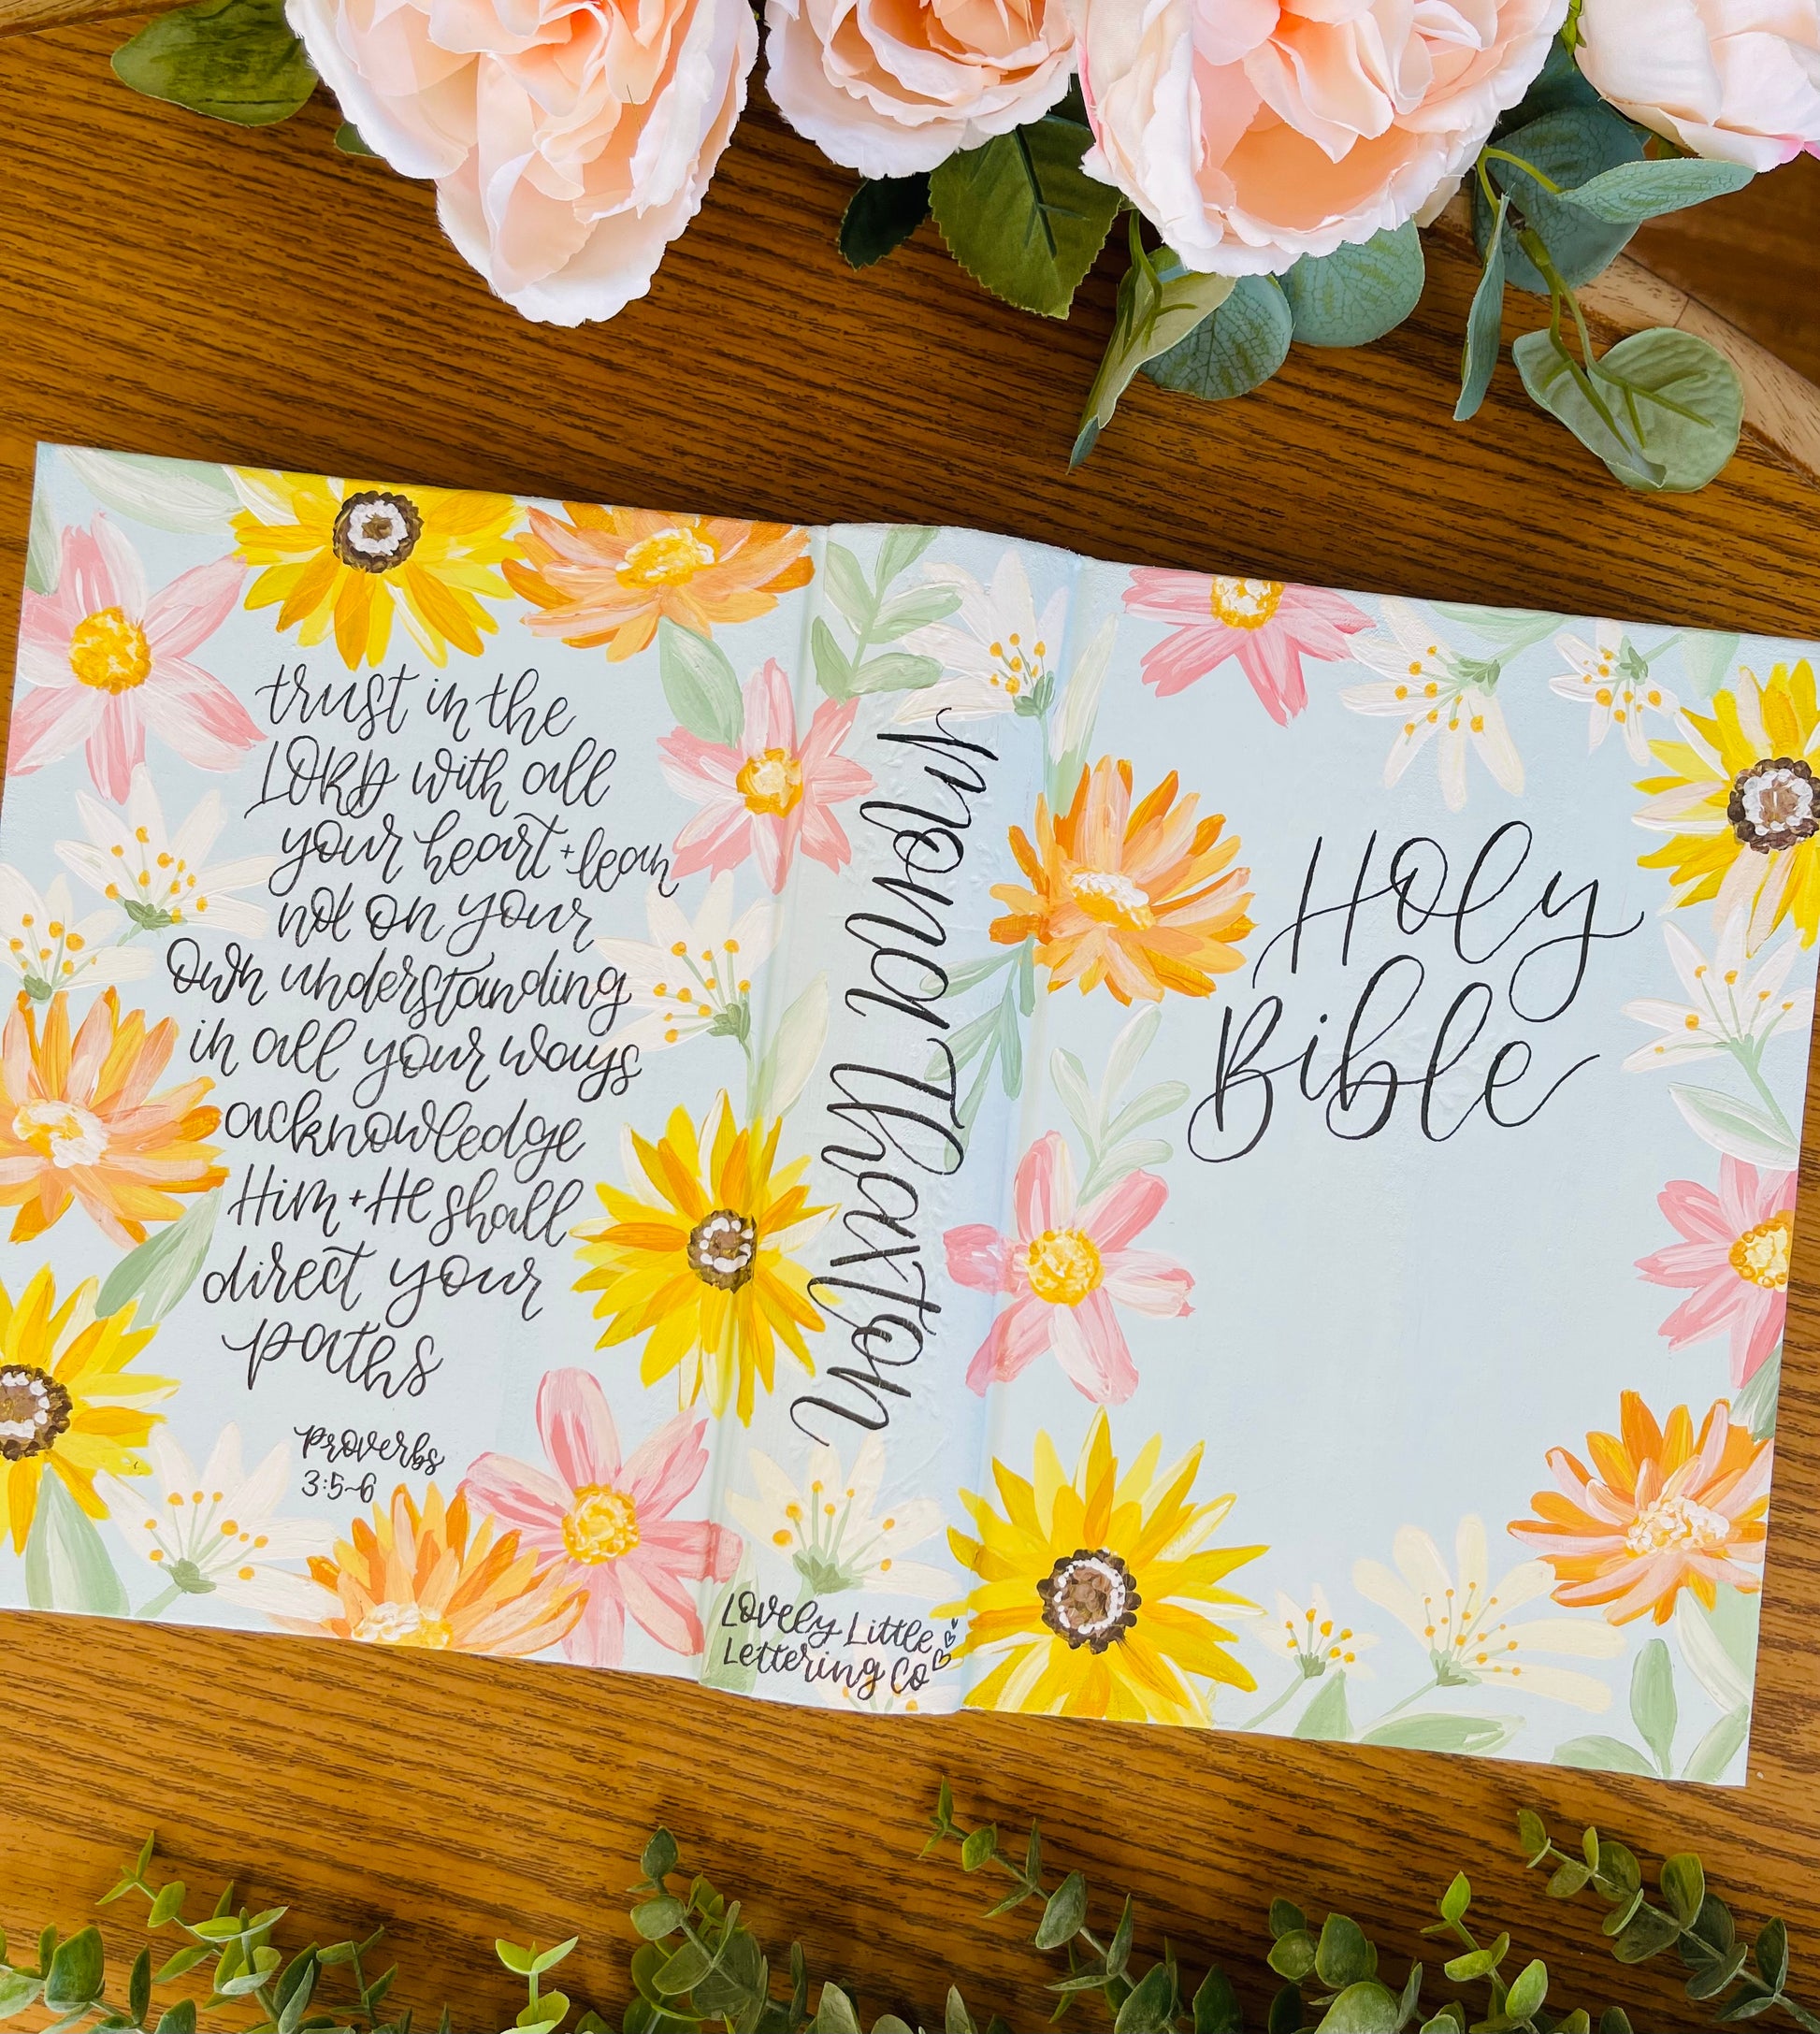 trust in the
LORD with all
your heart + lean
not on your
own understanding
in all your ways
acknowledge
Him + He shall
direct your
paths
Proverbs
3:5-6
Thaxton
Lovely Little
Lettering Co
Holy
Bible